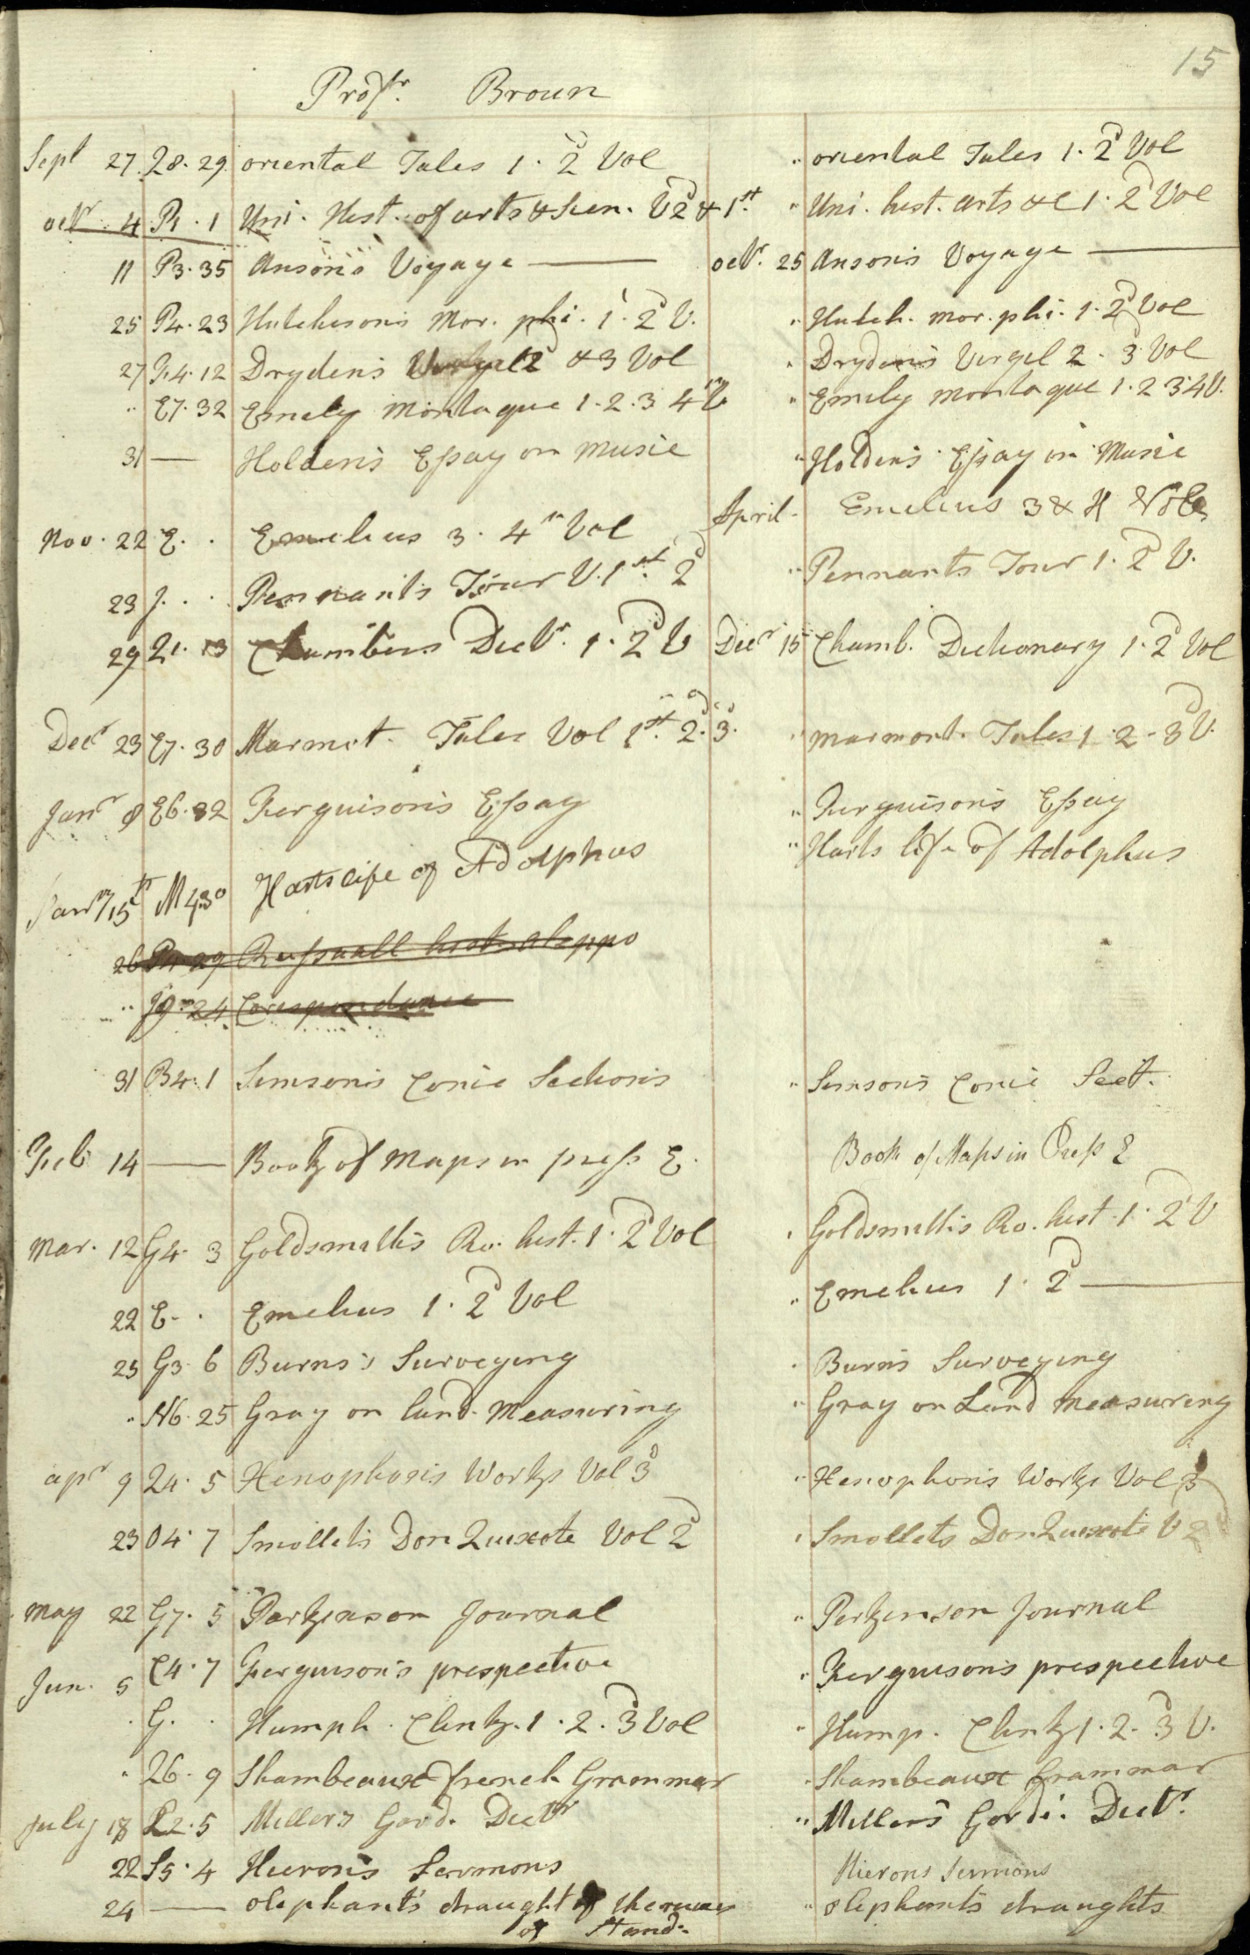 15
Profr. Broun
Sept 27 28. 29 oriental Tales 1. 2d Vol " oriental Tales 1. 2d Vol
octr. 4 P1. 1 Uni. Hist. of arts & Scien. V 2d & 1st. " Uni. hist. arts &c 1. 2d Vol
11 P3. 35 Anson's Voyage — octr. 25 Anson's Voyage —
25 P4. 23 Hutcheson's Mor. phi. 1. 2d V. " Hutch. mor. phi. 1. 2d Vol
27 F4. 12 Dryden's Virgel 2d & 3 Vol " Dryden's Vergel 2. 3 Vol
" E7. 32 Emely Montague 1. 2. 3 4th V " Emely montague 1. 2 3 4 V.
31 — Holden's Essay on Musie " Holden's Essay on Musie
April. Emelius 3 & 4 Vols
Nov. 22 E. . Emelius 3. 4th Vol
23 J. . . Pennant's Tour V. 1st. 2d " Pennants Tour 1. 2d V.
29 21. 13 Chambers Dictr. 1. 2d V Decr 15 Chamb. Dictionary 1. 2d Vol
Decr 23 E7. 30 Marmot. Tales Vol 1st. 2d. 3d. " marmont. Tales 1. 2. 3d V.
Janr 8 E6. 32 Ferguison's Essay " Ferguison's Essay
Janry 15th M4.30 Harts life of Adolphus " Harts life of Adolphus
26 P4 29 Russaall hist. aleppo
" J9 24 Corespondance
31 B4. 1 Simson's Conic Sections " Simson's Conic Sect.
Feb 14 — Book of Maps in press E. Book of Maps in Press E
Mar. 12 G4. 3 Goldsmith's Ro. hist. 1. 2d Vol " Goldsmith's Ro. hist. 1. 2d V
22 E. . Emelius 1. 2d Vol " Emelius 1. 2d —
23 G3. 6 Burns's Surveying " Burn's Surveying
" N6. 25 Gray on land. Measuring " Gray on Land measuring
apr 9 24. 5 Xenophon's Works Vol 3d " Xenophon's Works Vol 3
23 O4. 7 Smollet's Don Quixote Vol 2d " Smollets Don Quixote V 2d
May 22 G7. 5 Parkinson Journal " Perkinson Journal
Jun. 5 C4. 7 Ferguison's prespective " Ferguison's prespective
" G. . Humph. Clink. 1. 2. 3d Vol " Hump. Clink 1. 2. 3d V.
" 26. 9 Shambeaux french Grammar " Shambeaux Grammar
July 18 R2. 5 Millers Gard. Dictr " Miller's Gard. Dictr.
22 S5. 4 Hieron's Sermons Hierons Sermons
24 — olephant's draught of " olephant's draughts
of Stand.